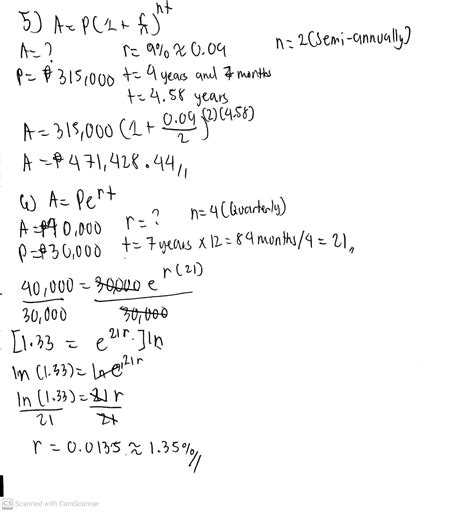 5) A = P(1 + r/n)^nt
A = ? r = 9% ≈ 0.09 n = 2 (semi-annually)
P = ₱315,000 t = 4 years and 7 months
t = 4.58 years
A = 315,000 (1 + 0.09/2)^(2)(4.58)
A = ₱471,428.44//
6) A = Pe^rt
A = ₱40,000 r = ? n = 4 (Quarterly)
P = ₱30,000 t = 7 years x 12 = 84 months/4 = 21//
40,000 = 30,000 e^r(21)
30,000 30,000
[1.33 = e^21r.] ln
ln (1.33) = ln e^21r
ln (1.33) = 21 r
21 21
r = 0.0135 ≈ 1.35%//
CS Scanned with CamScanner